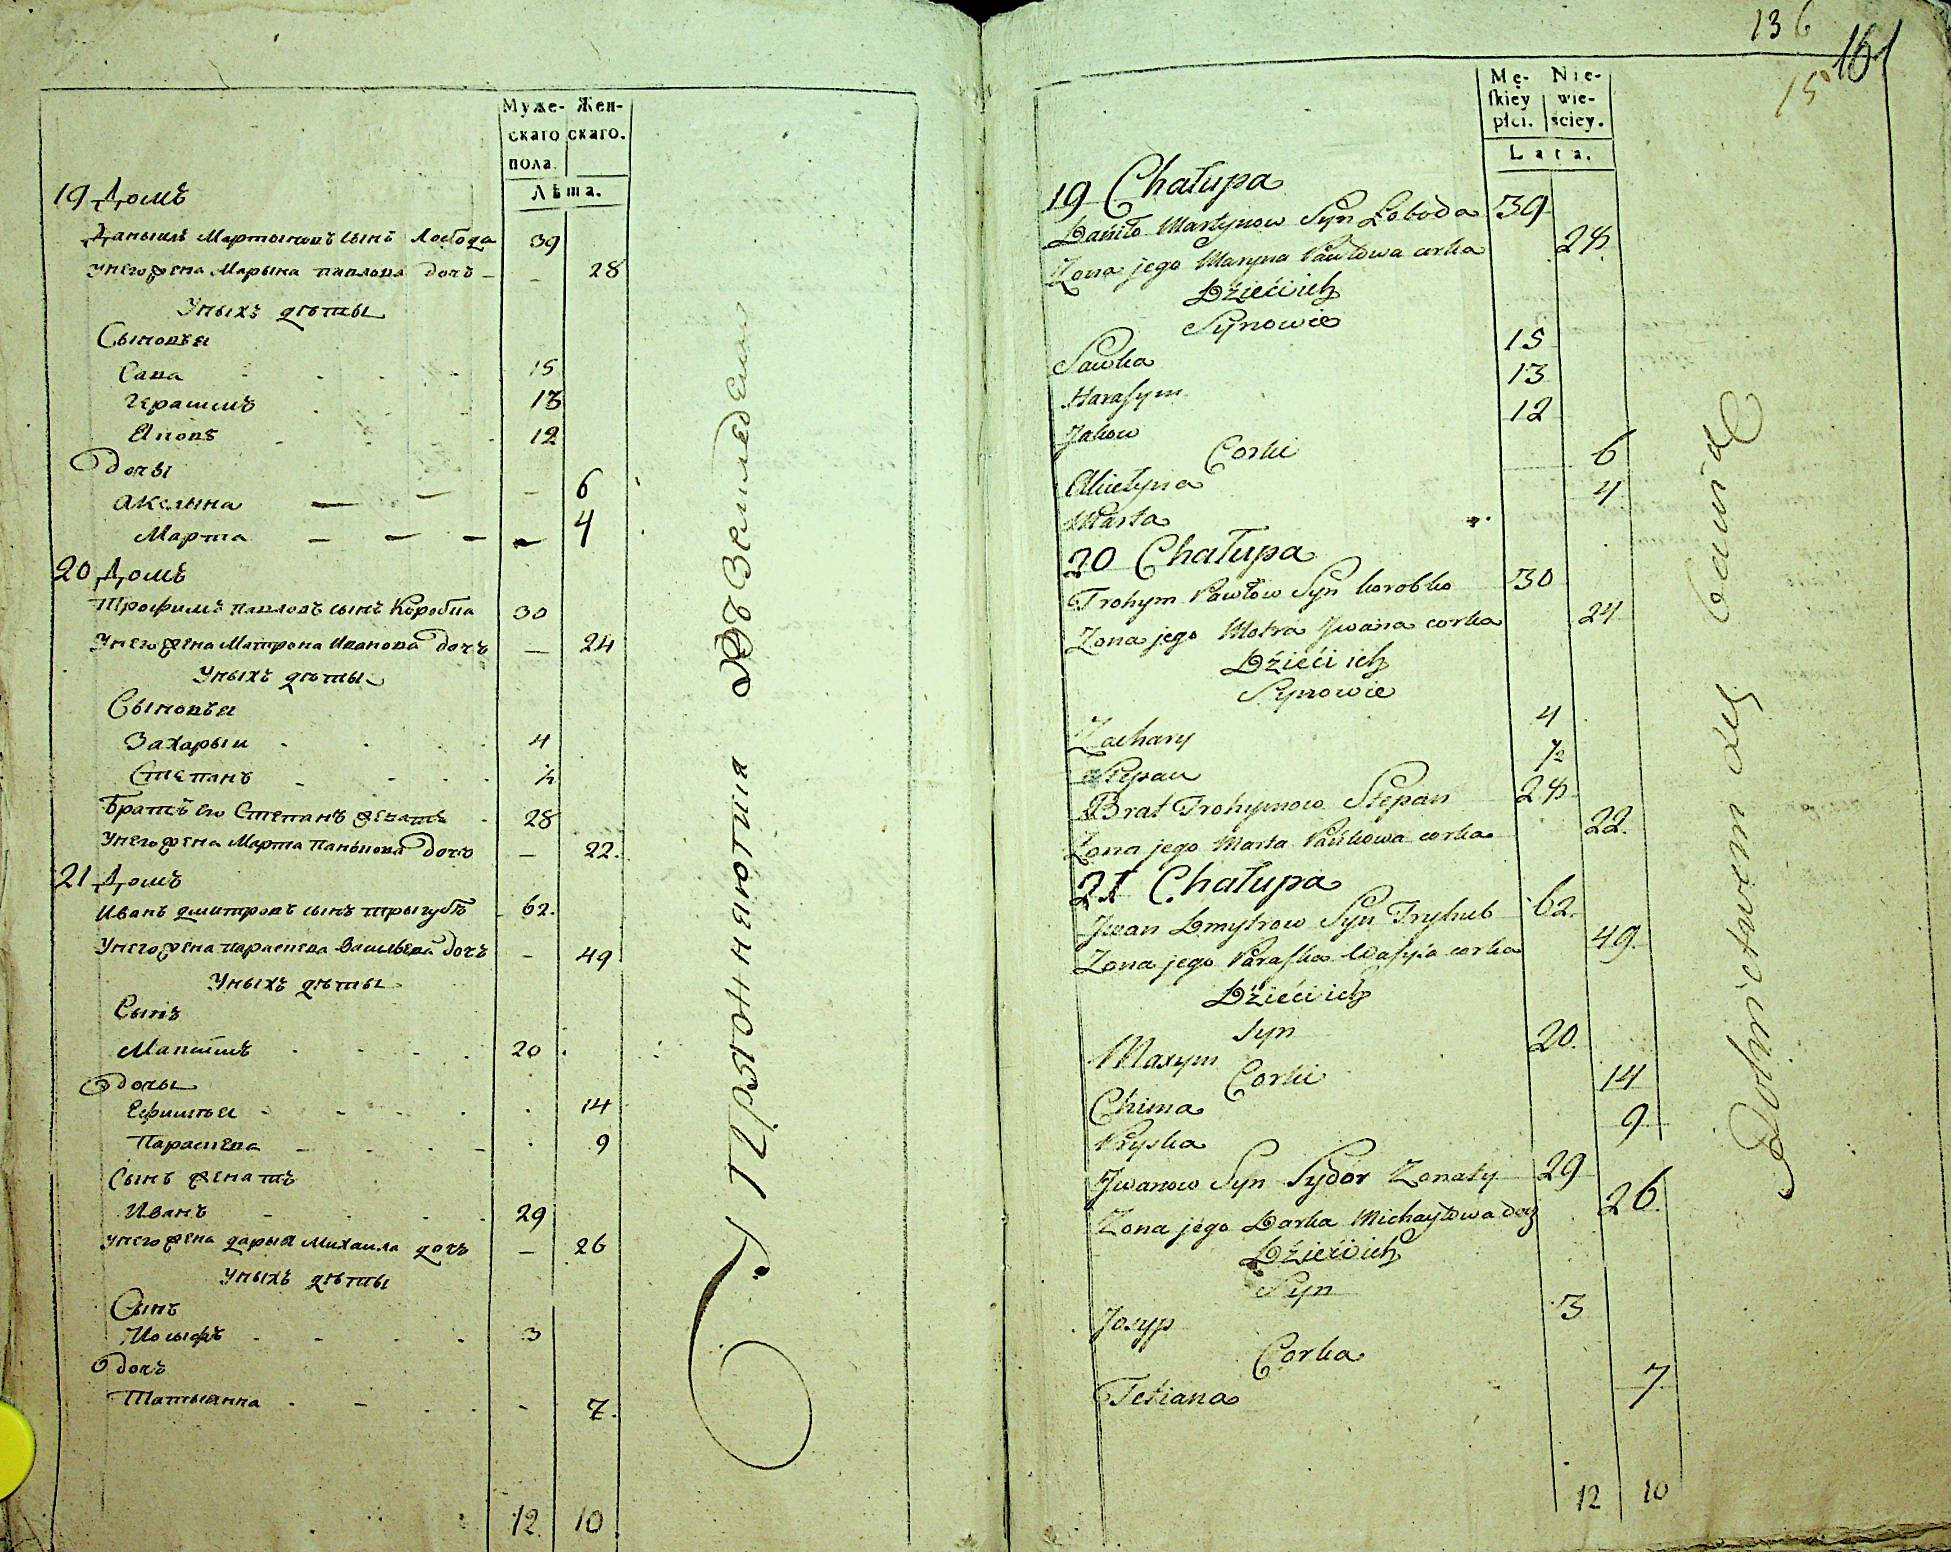 Муже- Жен-
скаго скаго.
пола.
Лѣта.
19 Домъ
Даныилъ Мартыновъ сынъ Лобода 39
Унего жена Марына павлова дочъ 28
Уныхъ дѣты
Сыновѣи
Сава 15
Герасимъ 13
Яковъ 12
Дочъы
Акелына 6
Марта 4
20 Домъ
Трофимъ павловъ сынъ Коробка 30
Унего жена Матрона Иванова дочъ 24
Уныхъ дѣты
Сыновѣи
Захарыи 4
Степанъ ½
Братъ его Степанъ женатъ 28
Унего жена Марта панькова дочъ 22.
21 Домъ
Иванъ дмитровъ сынъ трыгубъ 62.
Унего жена параскева Васильева дочъ 49
Уныхъ дѣты
Сынъ
Максимъ 20
дочъы
Ефимъя 14
Параскева 9
Сынъ женатъ
Иванъ 29
Унего жена дарыя Михаила дочъ 26
Уныхъ дѣты
Сынъ
Иосыфъ 3
дочъ
Татыянна 7.
12 10
136
161
15
Mę- Nie-
skiey wie-
płci. ściey.
Lata.
19 Chałupa
Daniło Martynow Syn Łoboda 39
Zona jego Maryna Pawłowa corka 28
Dźieci ich
Synowie
Sawka 15
Harasym 13
Jakow 12
Corki
Akiełyna 6
Marta 4
20 Chałupa
Trohym Pawłow Syn korobko 30
Zona jego Motra Jwana corka 24
Dźieci ich
Synowie
Zachary 4
Stepan ½
Brat Trohymow Stepan 28
Zona jego Marta Pańkowa corka 22.
21 Chałupa
Jwan Dmytrow Syn Tryhub 62.
Zona jego Paraska Wasyla corka 49.
Dźieci ich
Syn
Maxym 20.
Corki
Chima 14
Pryska 9
Jwanow Syn Sydor Zonaty 29
Zona jego Darka Michayłowa 26.
Dźieci ich
Syn
Josyp 3
Corka
Tetiana 7
12 10